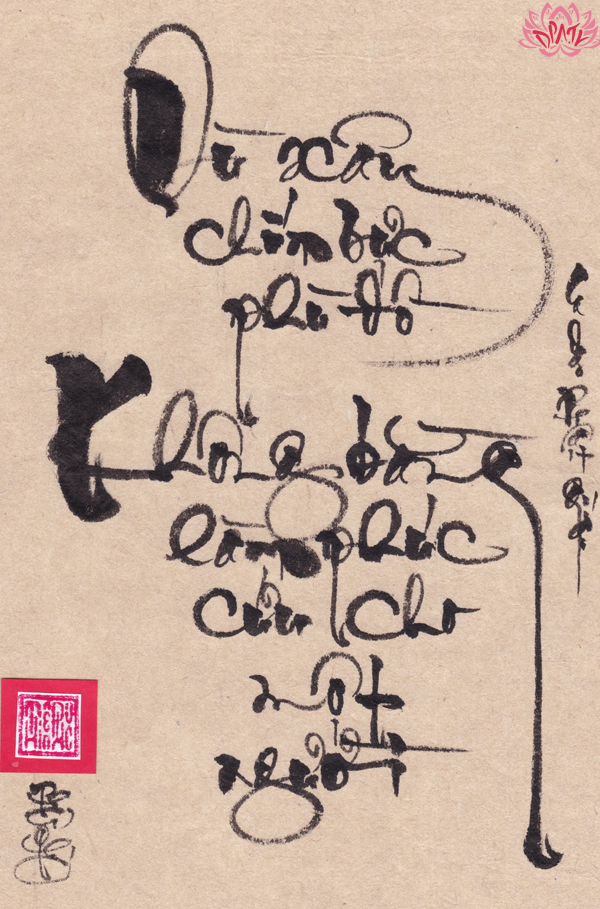 Dù xây
chín bậc
phù đồ
Không bằng
làm phúc
cứu cho
một
người